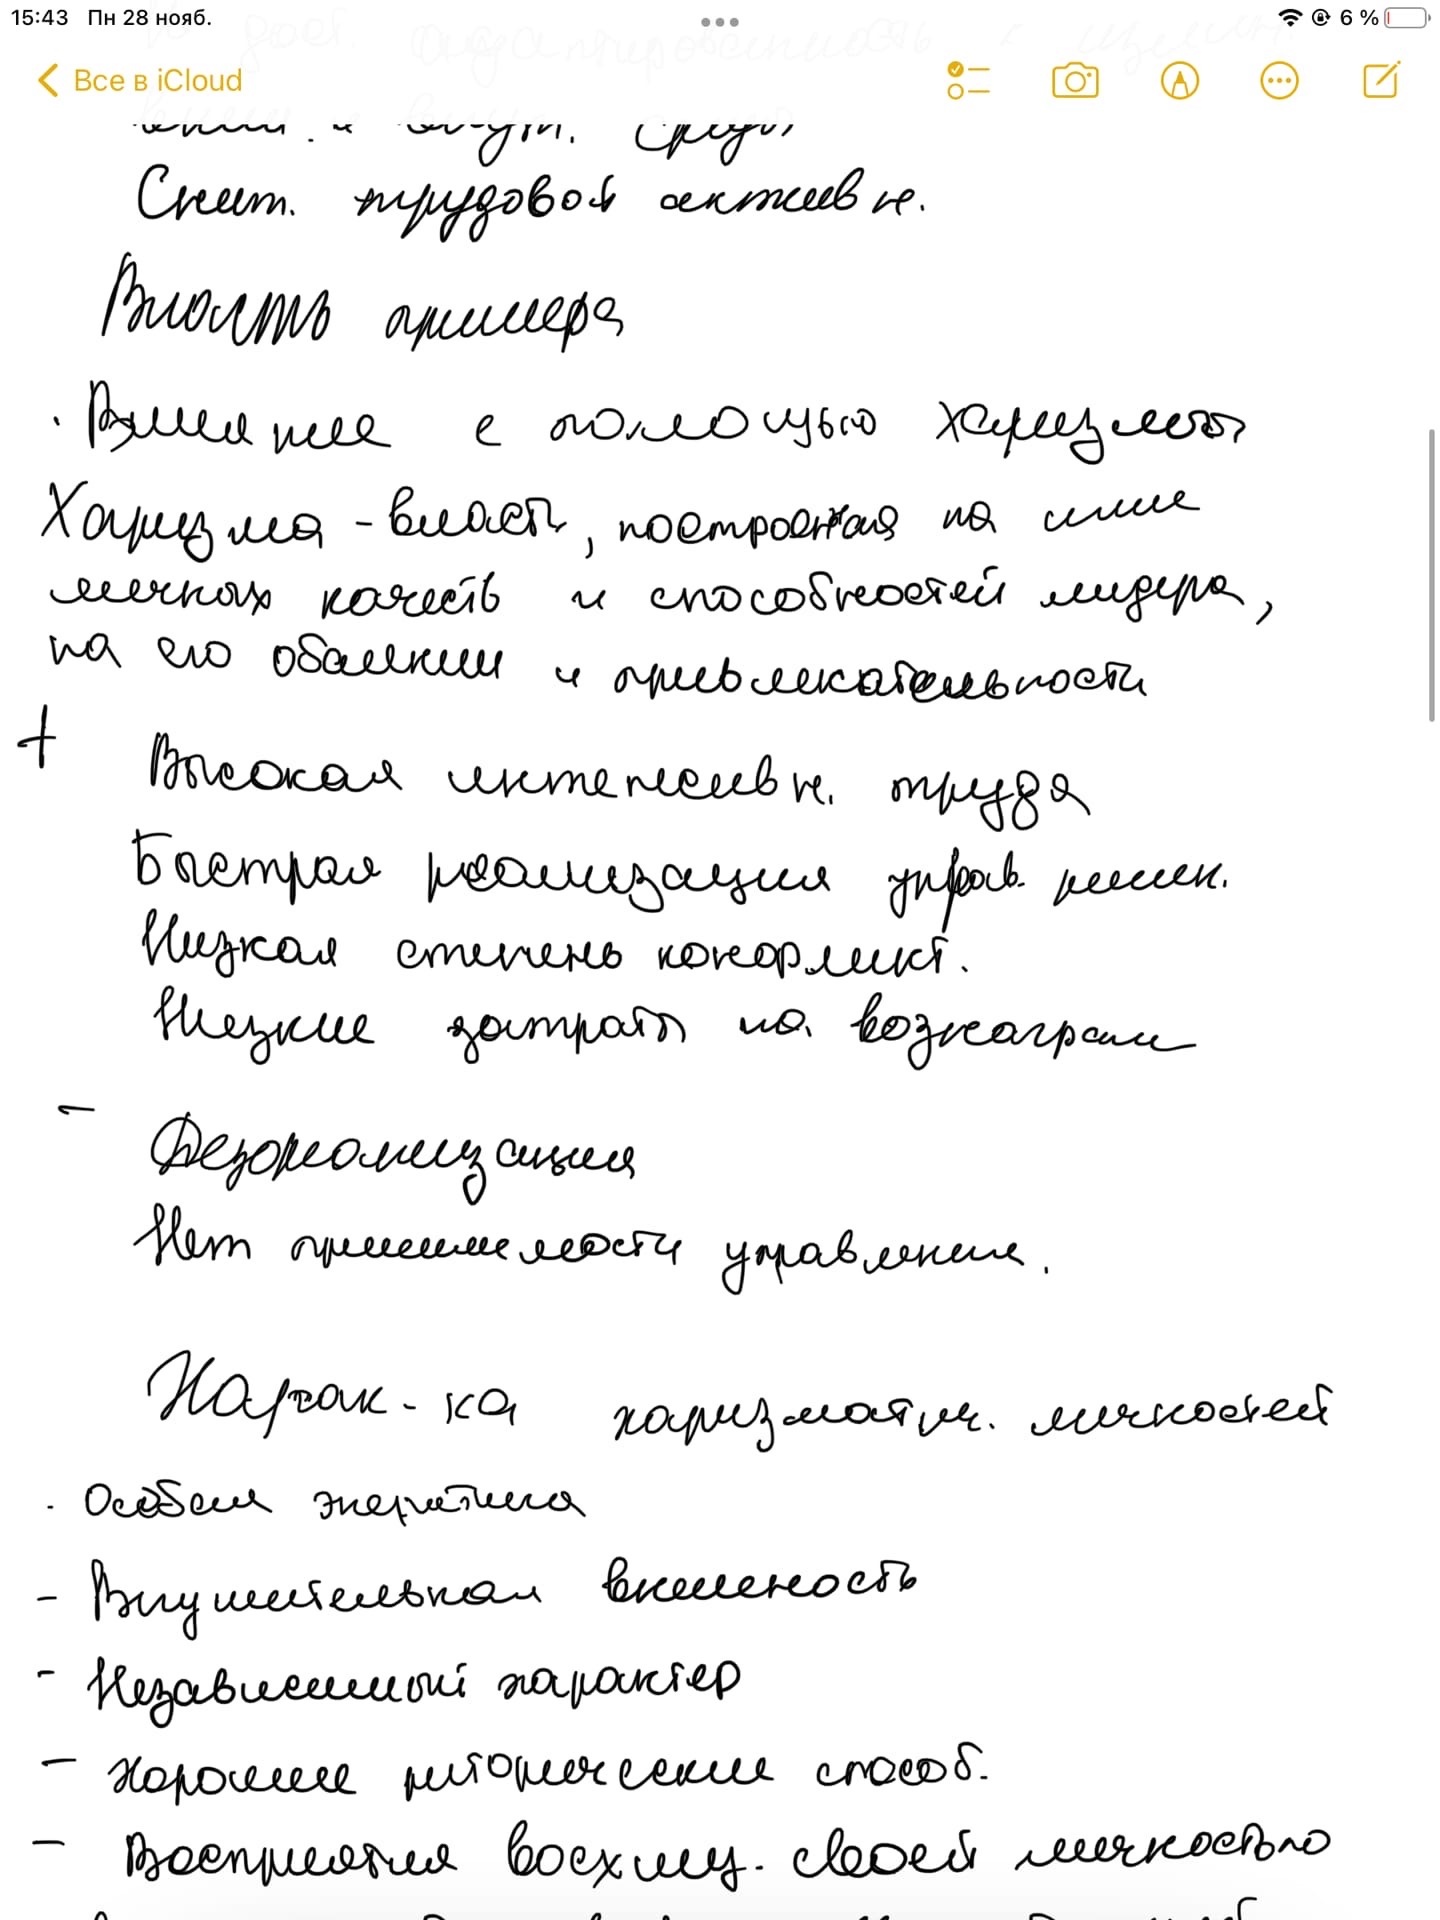 15:43 Пн 28 нояб.
6 %
Все в iCloud
Сниж. трудовой активн.
Власть примера
· Влияние с помощью харизмы
Харизма - власть, построенная на силе
личных качеств и способностей лидера,
на его обаянии и привлекательности
+ Высокая интенсивн. труда
Быстрая реализация управ. решен.
Низкая степень конфликт.
Низкие затраты на вознаграж
- Дезорганизация
Нет преемственности управления.
Харак-ка харизматич. личностей
- Особая энергетика
- Внушительная внешность
- Независимый характер
- Хорошие риторические способ.
- Восприятия восхищ. своей личностью